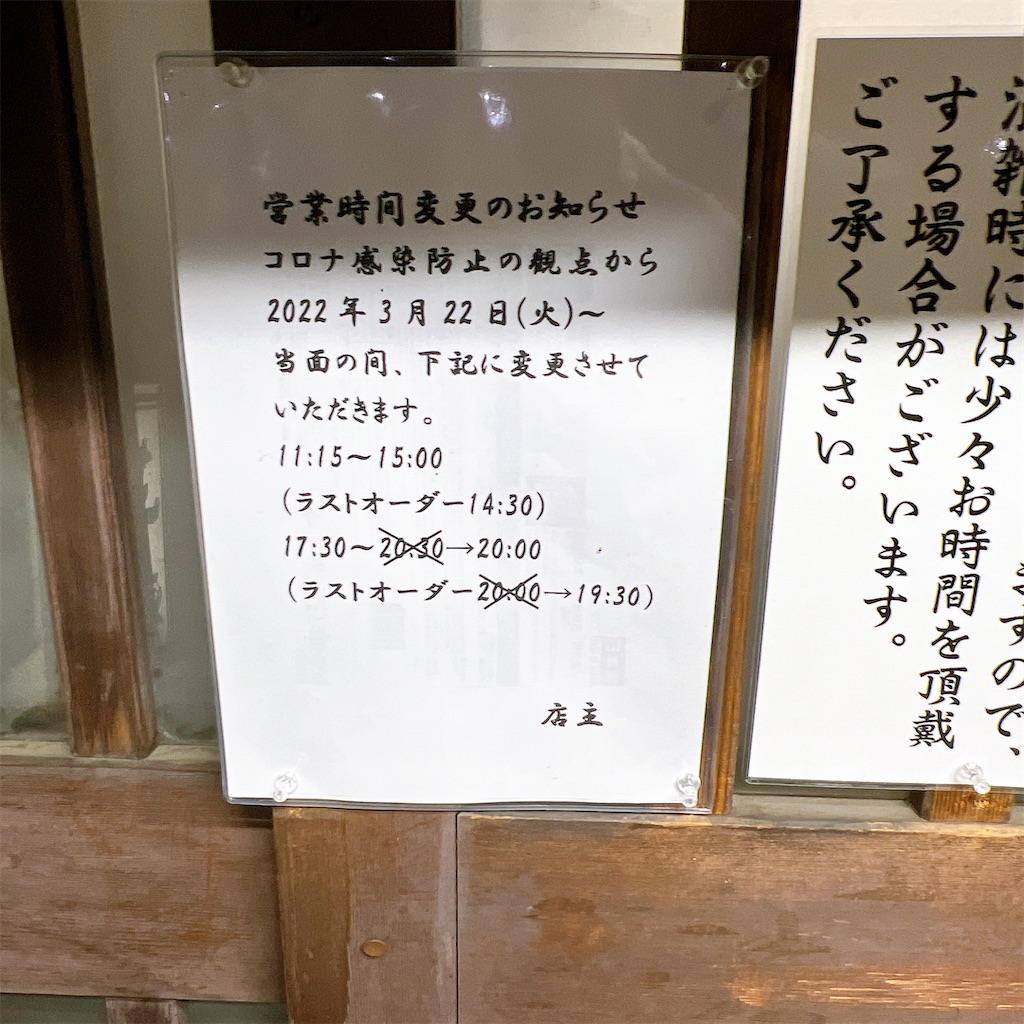 営業時間変更のお知らせ
コロナ感染防止の観点から
2022年3月22日(火)～
当面の間、下記に変更させて
いただきます。
11:15～15:00
(ラストオーダー14:30)
17:30～20:30→20:00
(ラストオーダー20:00→19:30)
店主
雑時には少々お時間を頂戴
する場合がございます。
ご了承ください。
ますので、